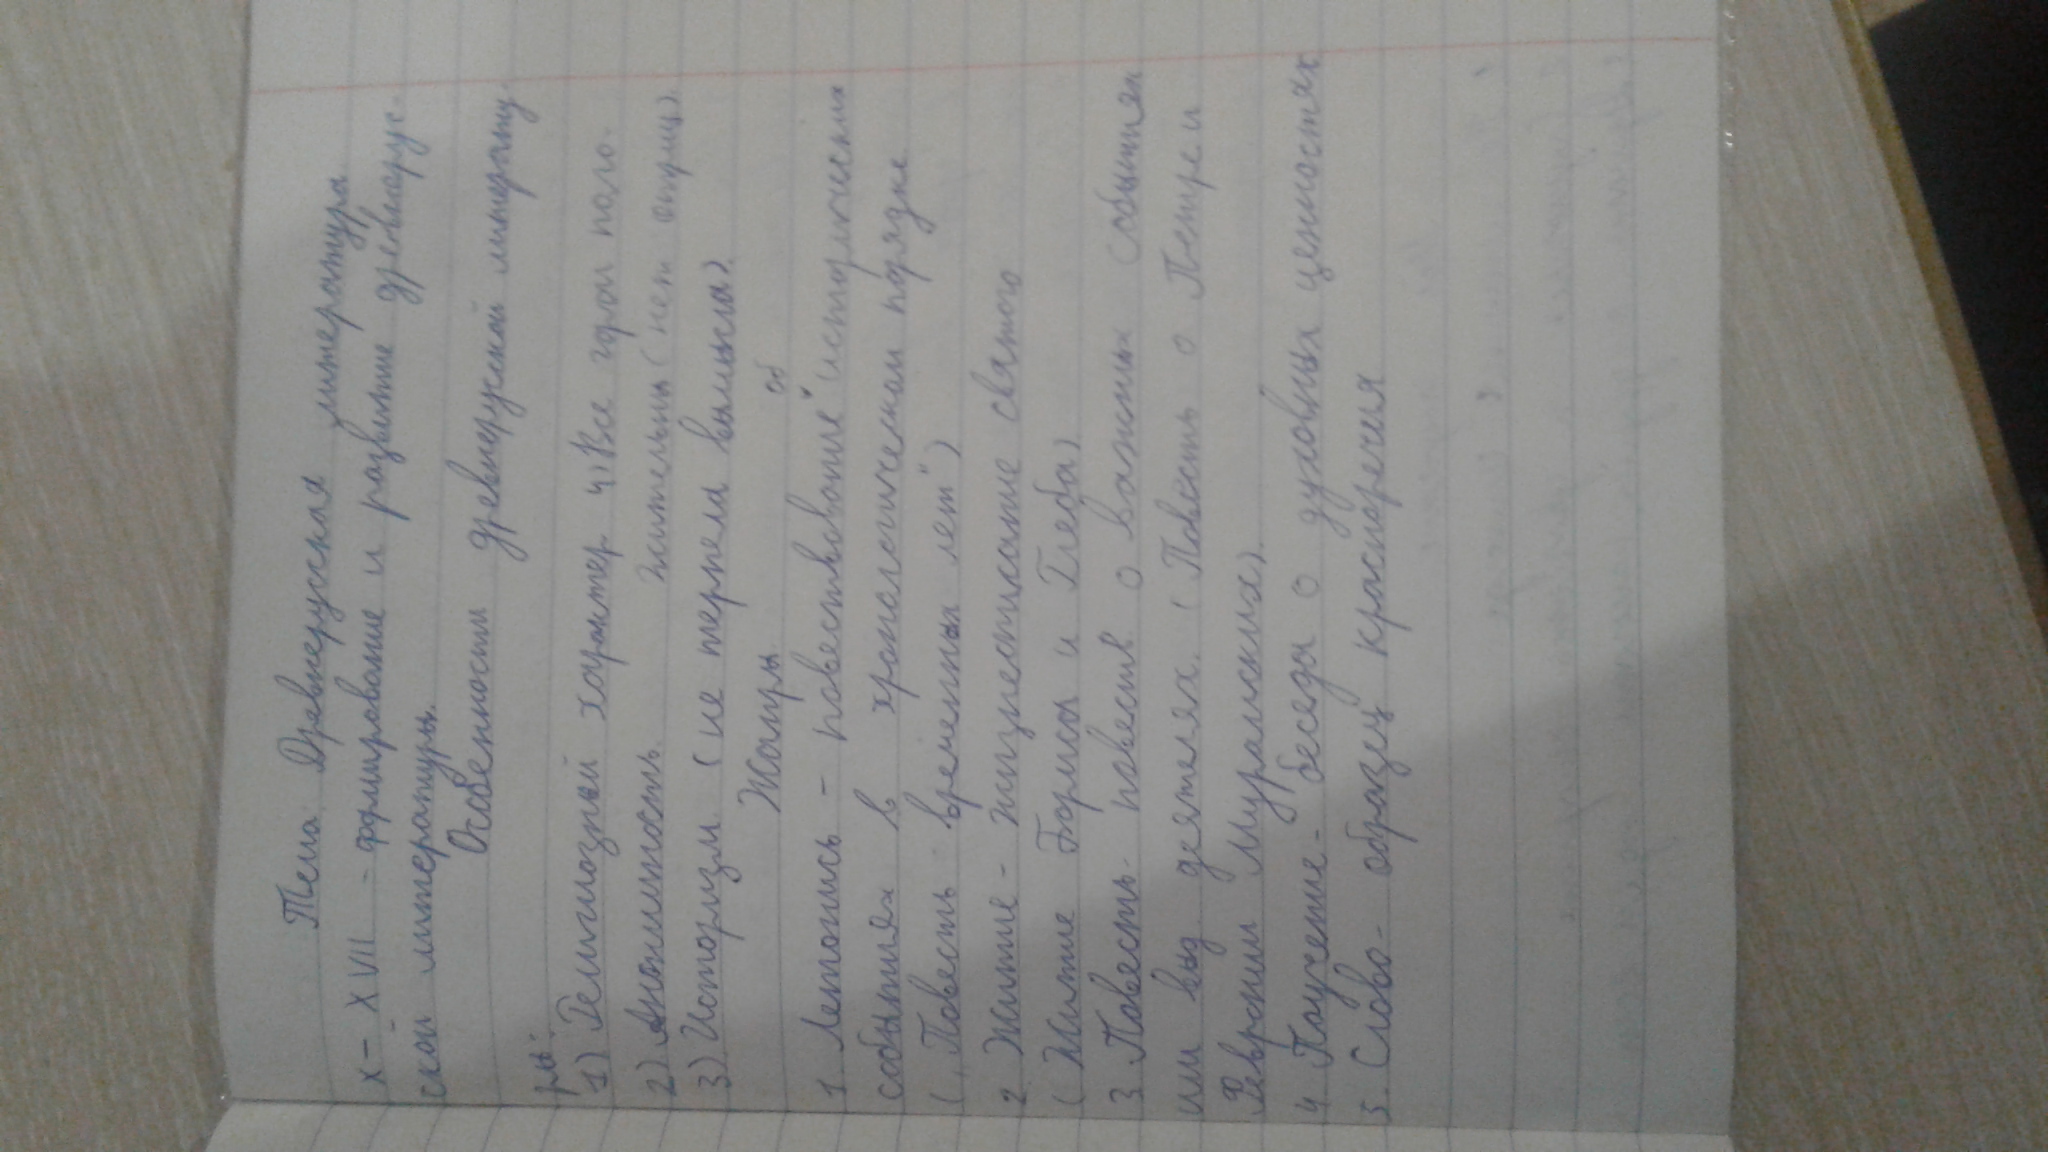 Тема: Древнерусская литература
X – XVII – формирование и развитие древнерус-
ской литературы.
Особенности древнерусской литерату-
ры:
1) Религиозный характер 4) Все герои поло-
2) Анонимность. жительны (нет отриц).
3) Историзм (не терпела вымысла).
Жанры
1 Летопись – повествование об исторических
событиях в хронологическом порядке
(„Повесть временных лет")
2. Житие – жизнеописание святого
(Житие Бориса и Глеба)
3 Повесть – повеств о важных событиях
или выд деятелях. (Повесть о Петре и
Февронии Муромских).
4 Поучение – беседа о духовных ценностях
5. Слово – образец красноречия